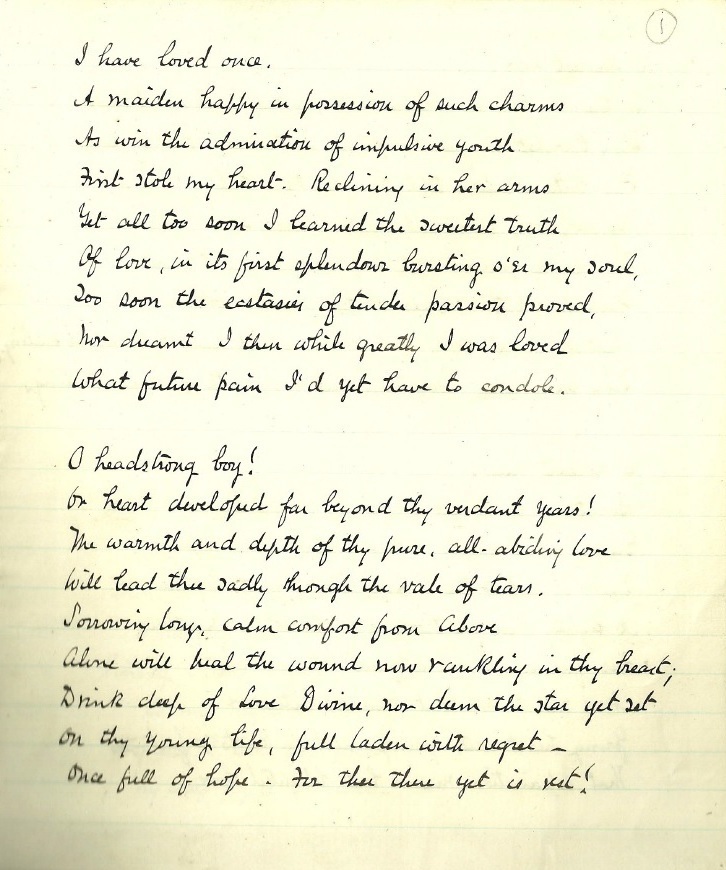 1
I have loved once.
A maiden happy in possession of such charms
As win the admiration of impulsive youth
First stole my heart. Reclining in her arms
Yet all too soon I learned the sweetest truth
Of love, in its first splendour bursting o'er my soul,
Too soon the ecstasies of tender passion proved,
Nor dreamt I then while greatly I was loved
What future pain I'd yet have to condole.
O headstrong boy!
Or heart developed far beyond thy verdant years!
The warmth and depth of thy pure, all-abiding love
Will lead thee sadly through the vale of tears.
Sorrowing long, calm comfort from Above
Alone will heal the wound now rankling in thy breast;
Drink deep of Love Divine, nor deem the star yet set
On thy young life, full laden with regret –
Once full of hope. For thee there yet is rest!